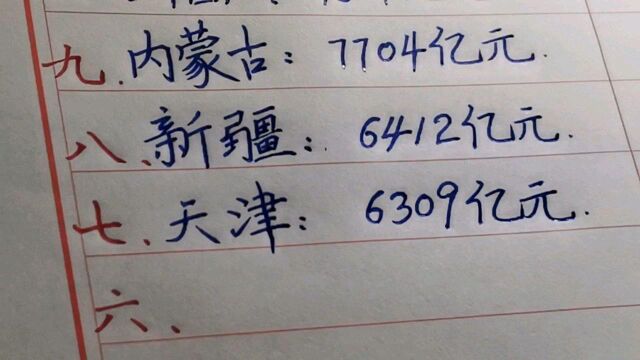 九、内蒙古：7704亿元.
八、新疆：6412亿元.
七、天津：6309亿元.
六、